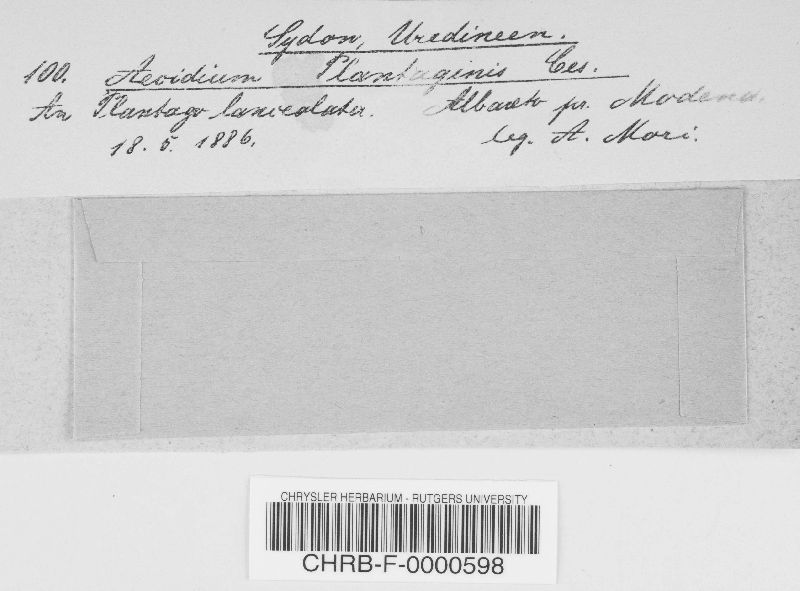 Sydow, Uredineen.
100. Aecidium Plantaginis Ces.
An Plantago lanceolata. Albareto pr. Modena.
18. 5. 1886. leg. A. Mori.
CHRYSLER HERBARIUM - RUTGERS UNIVERSITY
CHRB-F-0000598